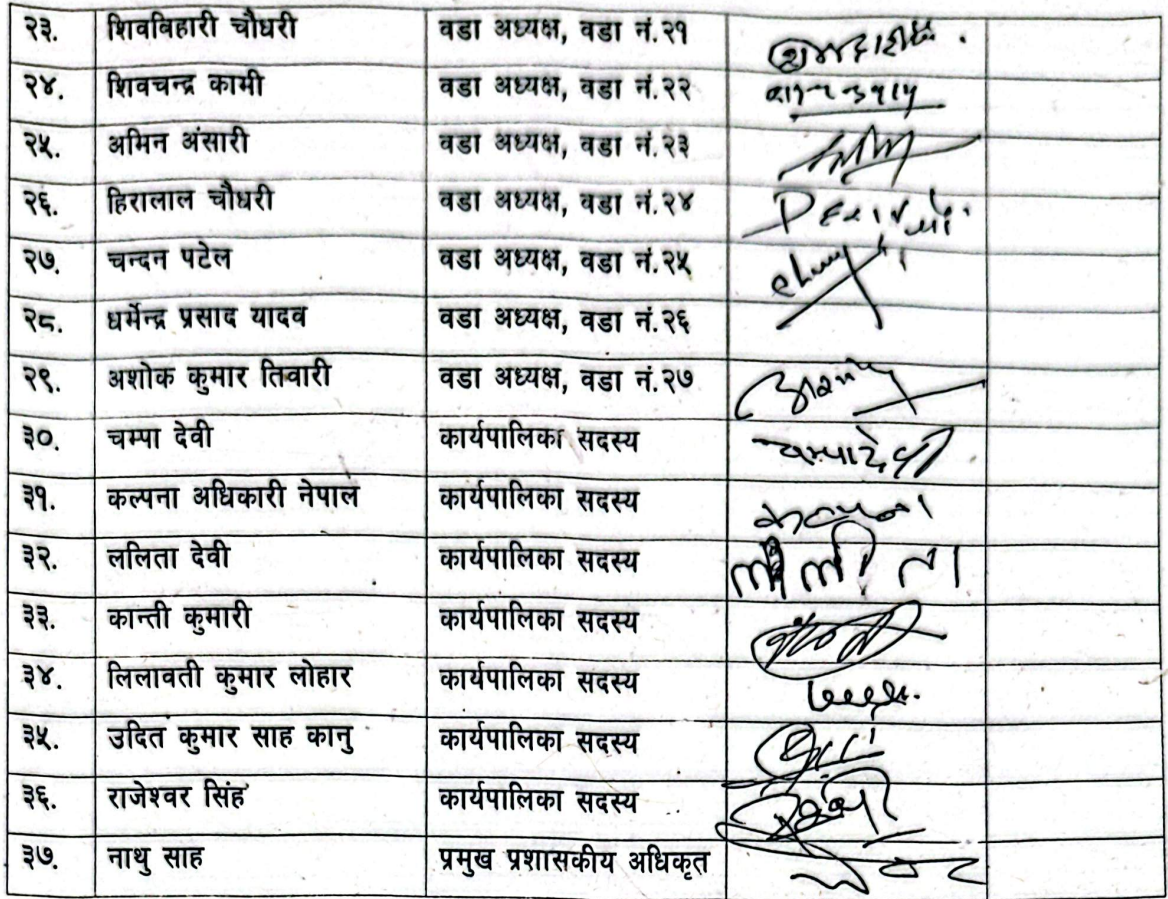 २३. शिवविहारी चौधरी वडा अध्यक्ष, वडा नं.२१
२४. शिवचन्द्र कामी वडा अध्यक्ष, वडा नं.२२
२५. अमिन अंसारी वडा अध्यक्ष, वडा नं.२३
२६. हिरालाल चौधरी वडा अध्यक्ष, वडा नं.२४
२७. चन्दन पटेल वडा अध्यक्ष, वडा नं.२५
२८. धर्मेन्द्र प्रसाद यादव वडा अध्यक्ष, वडा नं.२६
२९. अशोक कुमार तिवारी वडा अध्यक्ष, वडा नं.२७
३०. चम्पा देवी कार्यपालिका सदस्य चम्पादेवी
३१. कल्पना अधिकारी नेपाल कार्यपालिका सदस्य कल्पना
३२. ललिता देवी कार्यपालिका सदस्य
३३. कान्ती कुमारी कार्यपालिका सदस्य
३४. लिलावती कुमार लोहार कार्यपालिका सदस्य
३५. उदित कुमार साह कानु कार्यपालिका सदस्य
३६. राजेश्वर सिंह कार्यपालिका सदस्य
३७. नाथु साह प्रमुख प्रशासकीय अधिकृत